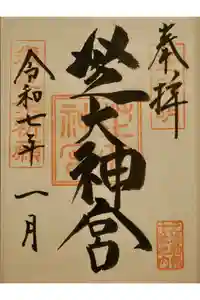 奉拝
芝大神宮
令和七年 一月